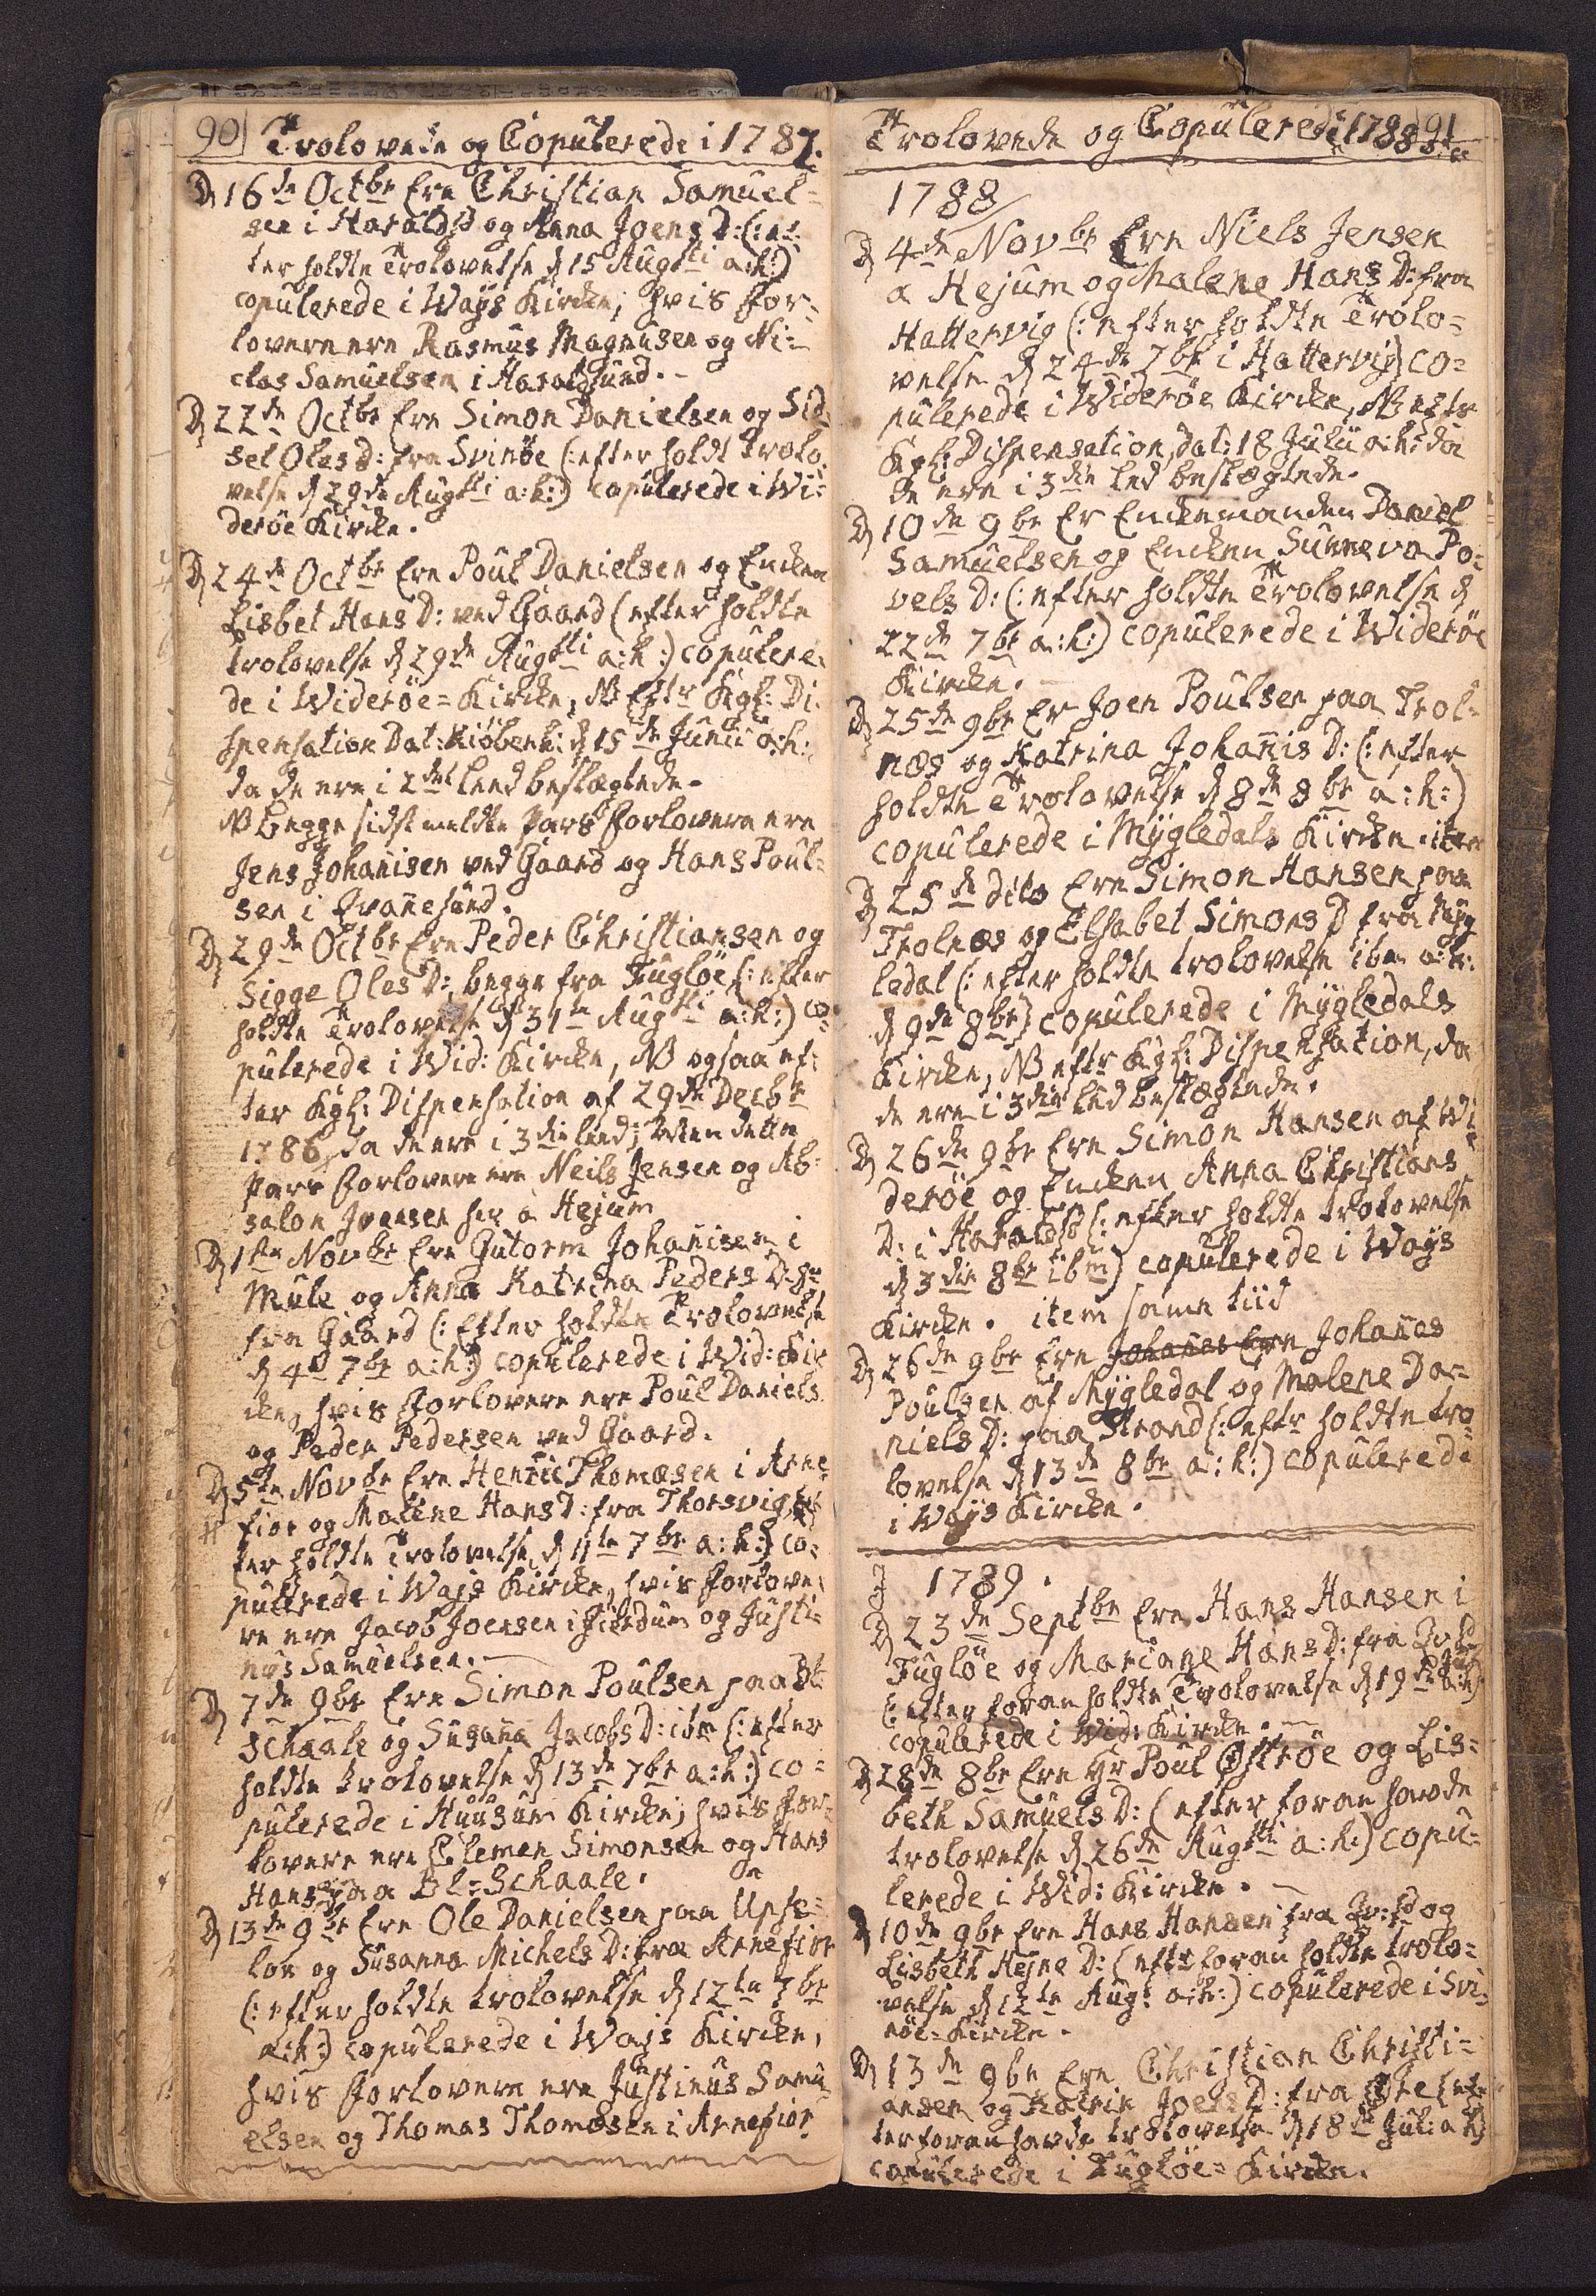 90 Trolovede og Copulerede i 1787.
D 16de Octbr Ere Christian Samuel=
sen i Haralds og Anna Joens D: (: ef
ter holdte Trolovelse d 15 Augsti a:h:)
copulerede i Waÿs Kircke, hvis For=
lovere ere Rasmus Magnusen og Ni=
clas Samuelsen i Haraldsund. -
D 22de Octbr Ere Simon Danielsen og Sid=
sel Oles D: fra Svinöe (: efter holdt Trolo
velse d 29de Augsti a:h:) copulerede i Wi=
deröe Kircke.
D 24de Octbr Ere Poul Danielsen og Encken
Lisbet Hans D: ved Gaard (efter holdte
Trolovelse d 29de Augsti a:h:) copulere=
de i Wideröe=Kircke, NB Eftr Kgl: Di=
spensation Dat: Kiöbenh: d 15de Junii a:h:
da de ere i 2det Leed beslægtede.
NB begge sidst meldte Pars Forlovere ere
Jens Johañisen ved Gaard og Hans Poul=
sen i Qvañesund.
D 29de Octbr Ere Peder Christiansen og
Sigge Oles D: begge fra Fuglöe (: efter
holdte Trolovelse d 31te Augsti a:h:) co=
pulerede i Wid: Kircke, NB ogsaa ef=
ter Kgl: Dispensation af 29de Decbr
1786, da de ere i 3die Leed; Men dette
Pars Forlovere ere Neils Jensen og Ab=
salon Joensen her a Hejum
D 1ste Novbr Ere Gutorm Johañisen i
Mule og Anna Katrina Peders D:
fra Gaard (: Efter holdte Trolovelse
d 4de 7br a:h:) copulerede i Wid: Kir
cke, hvis Forlovere ere Poul Daniels
og Peder Pedersen ved Gaard.
D 5te Novbr Ere Henric Thomæsen i Arne
fior og Malene Hans D: fra Thorsvig, ef
ter holdte Trolovelse, d 11te 7br a:h:) co=
pulerede i Wajs Kircke, hvis Forlove=
re ere Jacob Joensen i og Justi=
nus Samuelsen. -
D 7de 9br Ere Simon Poulsen paa Bl:
Schaale og Susaña Jacobs D: ibm (: efter
holdte trolovelse d 13de 7br a:h:) co=
pulerede i Huusum Kircke; hvis For=
lovere ere Clemen Simonsen og Hans
Hansen paa Bl=Schaale.
D 13de 9br Ere Ole Danielsen paa Upse=
lor og Susanna Michels D: fra Arnefior
(: efter holdte trolovelse d 12te 7br
a:h:) copulerede i Wajs Kircke,
hvis Forlovere ere Justinus Samu
elsen og Thomas Thomæsen i Arnefior
Trolovede og Copulerede i 1788 91
1788
D 4de Novbr Ere Niels Jensen
a Hejum og Malene Hans D: fra
Hattervig (: efter holdte Trolo=
velse d 24de 7br i Hattervig) co=
pulerede i Wideröe Kircke, NB eftr
Kgl: Dispensation, dat: 18 Julii a:h: da
de ere i 3die Led beslægtede.
D 10de 9br Er Enckemanden Daniel
Samuelsen og Encken Sunneva Po=
vels D: (: efter holdte Trolovelse d
22de 7br a:h:) copulerede i Wideröe
Kircke.
D 25de 9br Er Joen Poulsen paa Trol=
næs og Katrina Johañis D: (: efter
holdte Trolovelse d 8de 8br a:h:)
copulerede i Mÿgledals Kircke item
D 25de dito Ere Simon Hansen paa
Trolnæs og Elsabet Simons D fra Mÿg
ledal (: efter holdte trolovelse ibm a:h:
d 9de 8br) copulerede i Mÿgledals
Kircke, NB eftr Kgl: Dispensation, da
de ere i 3die Led beslægtede.
D 26de 9br Ere Simon Hansen af Wi
deröe og Encken Anna Christians
D: i Haralds (: efter holdte trolovelse
d 3die 8br ibm) copulerede i Waÿs
Kircke. item same tiid
D 26de 9br Ere Johañes Ere Johañes
Poulsen af Mÿgledal og Malene Da=
niels D: paa Strand (: eftr holdte tro
lovelse d 13de 8br a:h:) copulerede
i Waÿs Kircke.
1789.
D 23de Septbr Ere Hans Hansen i
Fuglöe og Mariane Hans D: fra
(: efter foran holdte Trolovelse d 19de a:h)
copulerede i Wid: Kircke. -
D 28de 8br Ere Hr Poul Öströe og Lis=
beth Samuels D: (efter foran havde
trolovelse d 26de Augsti a:h:) copu=
lerede i Wid: Kircke. -
D 10de 9br Ere Hans Hansen fra og
Lisbeth Hejne D: (eftr foran holdte trolo=
velse d 12te Aug: a:h:) copulerede i Svi=
nöe=Kircke.
D 13de 9br Ere Christian Christi=
ansen og Katrin Joens D: fra (ef=
ter foran havde trolovelse d 18de Jul: a h)
copulerede i Fuglöe=Kircke.